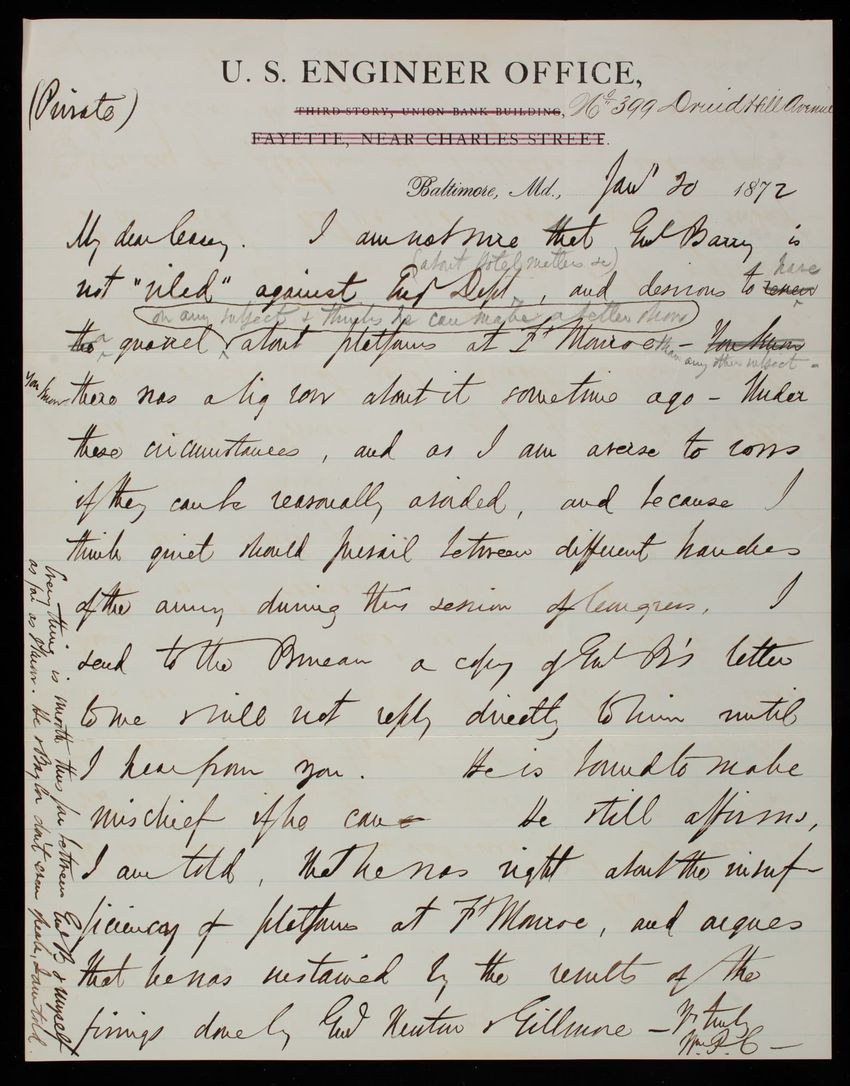 U. S. ENGINEER OFFICE,
(Private)
THIRD STORY, UNION BANK BUILDING, No 399 Druid Hill Avenue
FAYETTE, NEAR CHARLES STREET.
Baltimore, Md., Jany 20 1872
My dear Casey. I am not sure that Genl Barry is
(about hotel matters &c) have
not "riled" against Eng Dept, and desirous to renew
on any subject & thinks he can make a better show
the a quarrel about platforms at Ft Monroe than any other subject - You know
You know there was a big row about it sometime ago - Under
these circumstances, and as I am averse to rows
if they can be reasonably avoided, and because I
think quiet should prevail between different branches
of the army during this session of Congress, I
send to the Bureau a copy of Genl B's letter
to me & will not reply directly to him until
I hear from you. He is bound to make
mischief if he can - He still affirms,
I am told, that he was right about the insuf-
ficiency of platforms at Ft Monroe, and argues
that he was sustained by the results of the
firings done by Genl Newton & Gillmore - Yr truly
Wm. P. C -
Every thing is smooth thus far between Genl B. & myself
as far as I know. He & Baylor don't even speak, I am told.